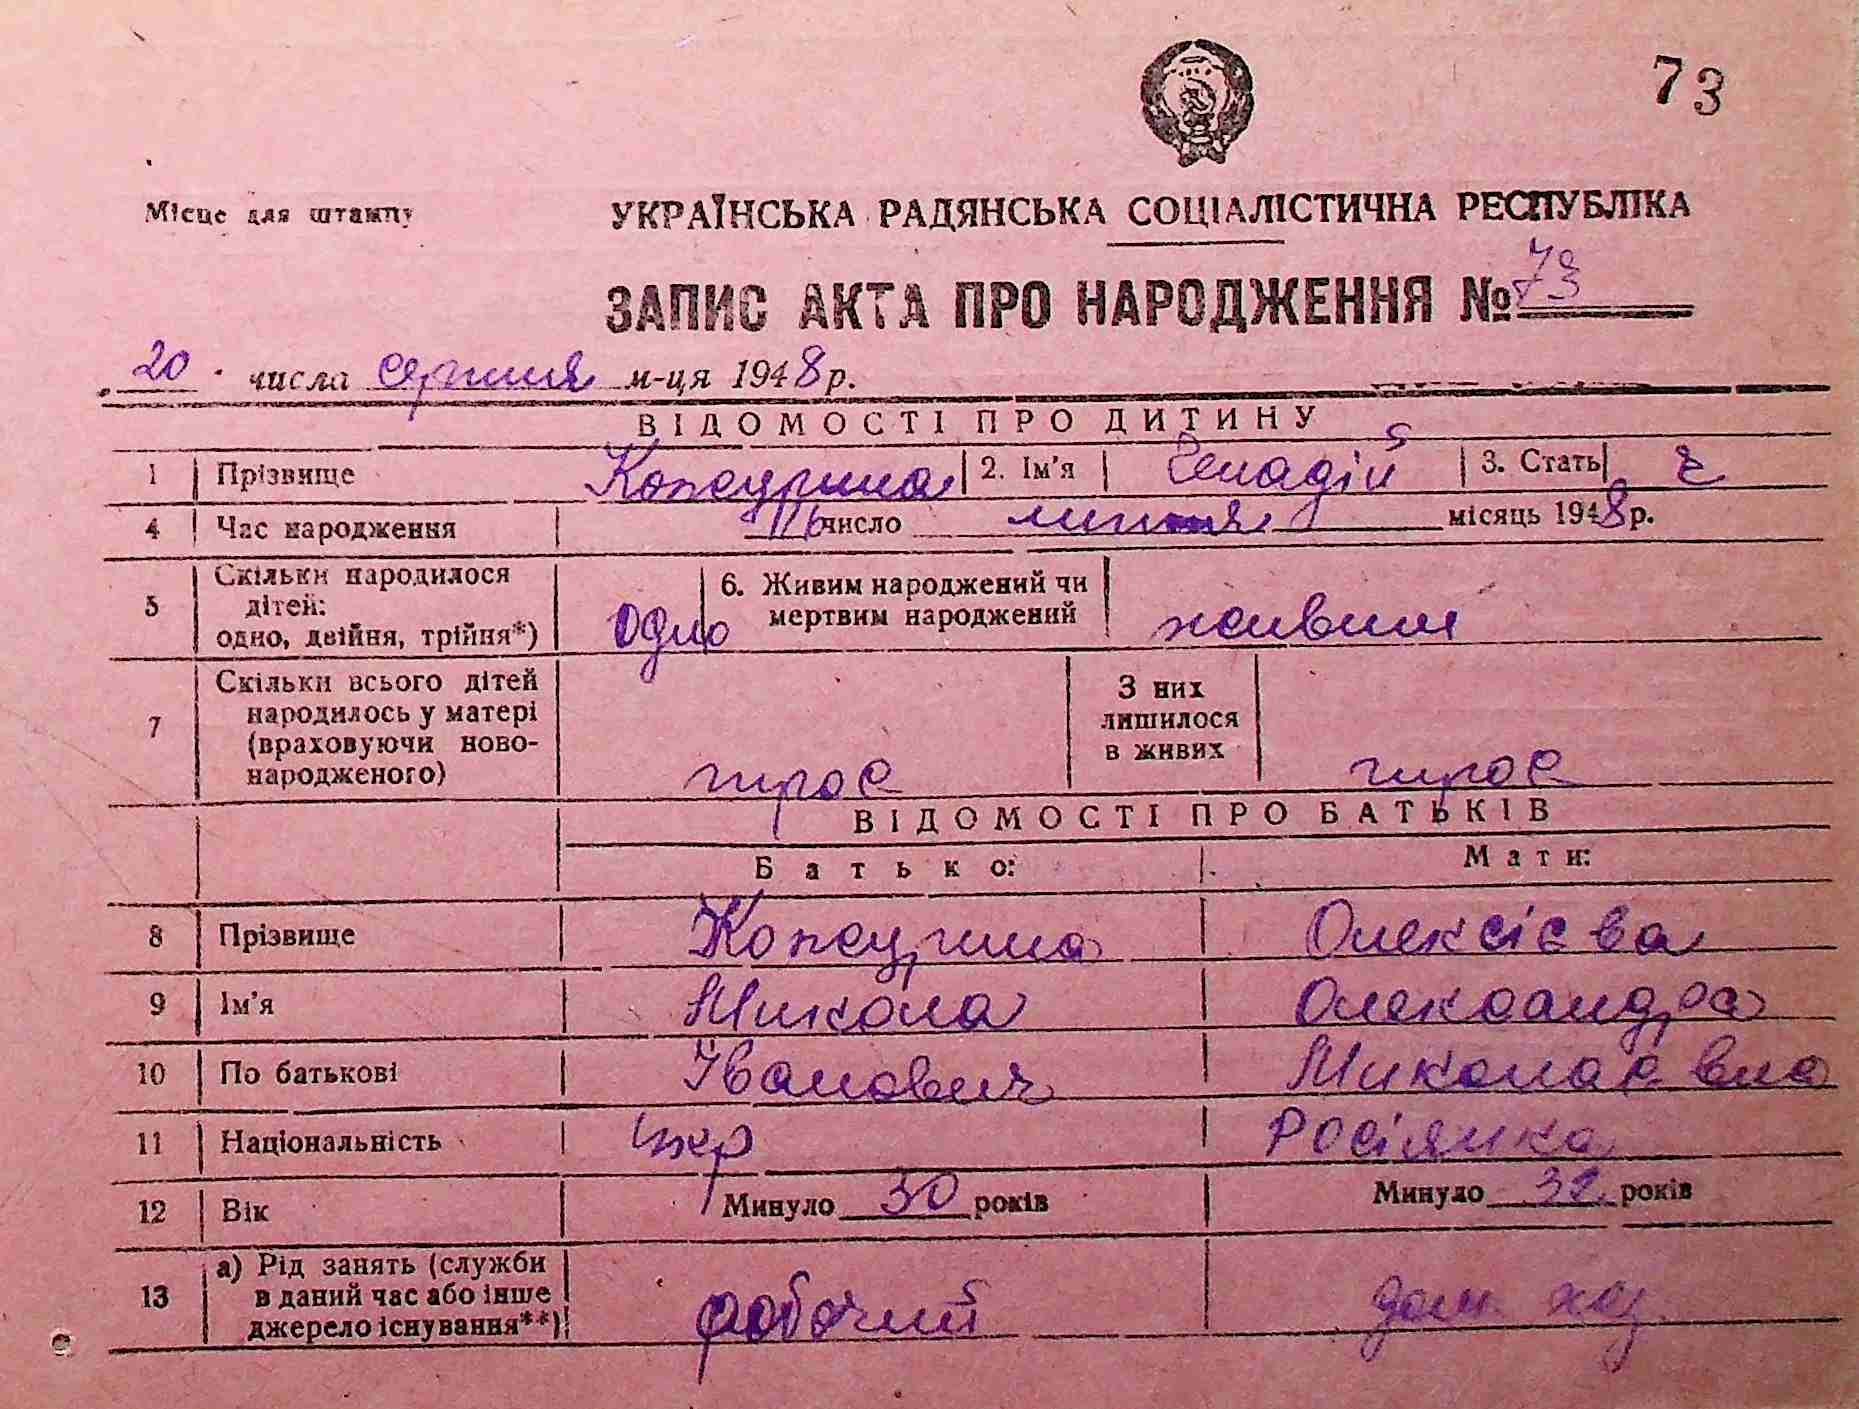 73
Місце для штампу
УКРАЇНСЬКА РАДЯНСЬКА СОЦІАЛІСТИЧНА РЕСПУБЛІКА
ЗАПИС АКТА ПРО НАРОДЖЕННЯ № 73
73
20 числа серпня м-ця 1948 р.
ВІДОМОСТІ ПРО ДИТИНУ
1 Прізвище Кожурина 2. Ім'я Генадій 3. Стать ч
4 Час народження 16 число липня місяць 1948 р.
5 Скільки народилося дітей: одно, двійня, трійня*) одно 6. Живим народжений чи мертвим народжений живим
7 Скільки всього дітей народилось у матері (враховуючи новонародженого) троє З них лишилося в живих троє
ВІДОМОСТІ ПРО БАТЬКІВ
Батько: Мати:
8 Прізвище Кожурина Олексієва
9 Ім'я Микола Олександра
10 По батькові Іванович Миколаєвна
11 Національність укр Росіянка
12 Вік Минуло 30 років Минуло 32 років
13 а) Рід занять (служби в даний час або інше джерело існування**) робочий дом. хаз.